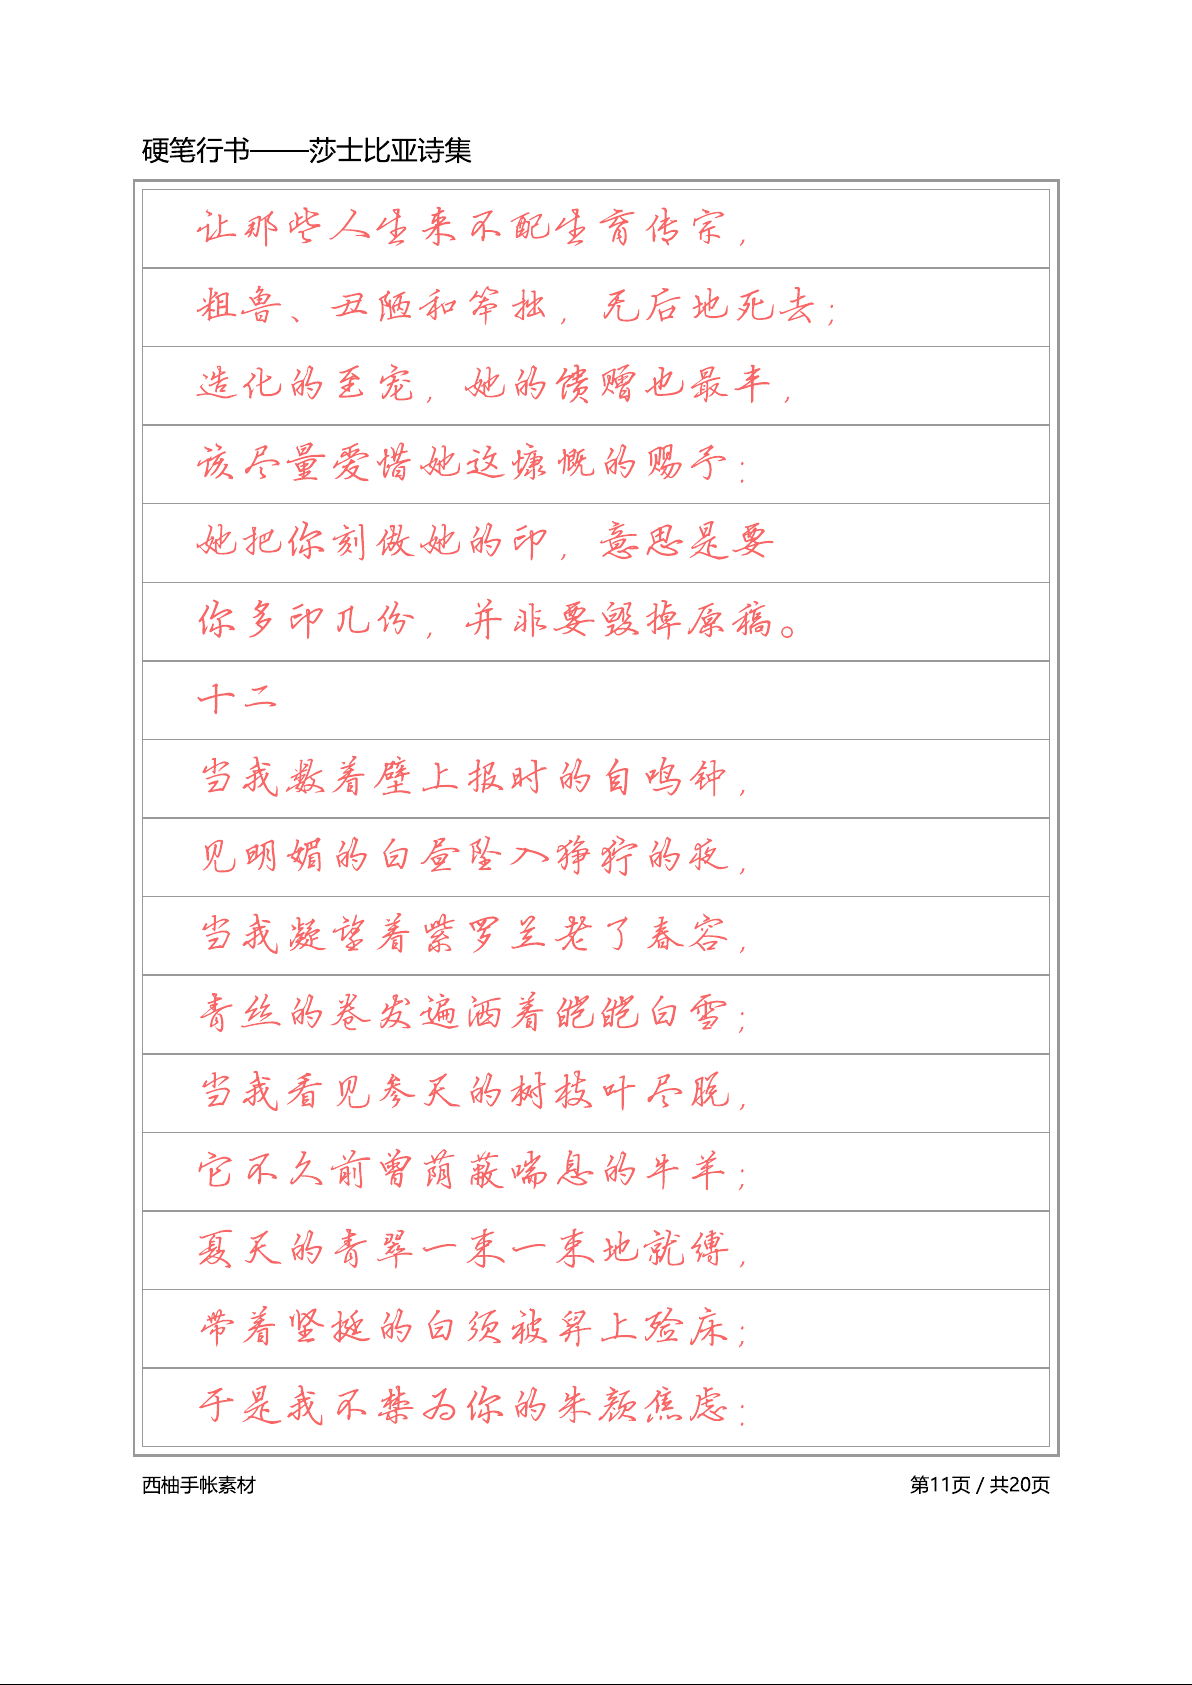 硬笔行书——莎士比亚诗集
让那些人生来不配生育传宗，
粗鲁、丑陋和笨拙，无后地死去；
造化的至宠，她的馈赠也最丰，
该尽量爱惜她这慷慨的赐予：
她把你刻做她的印，意思是要
你多印几份，并非要毁掉原稿。
十二
当我数着壁上报时的自鸣钟，
见明媚的白昼坠入狰狞的夜，
当我凝望着紫罗兰老了春容，
青丝的卷发遍洒着皑皑白雪；
当我看见参天的树枝叶尽脱，
它不久前曾荫蔽喘息的牛羊；
夏天的青翠一束一束地就缚，
带着坚挺的白须被舁上殓床；
于是我不禁为你的朱颜焦虑：
西柚手帐素材
第11页 / 共20页